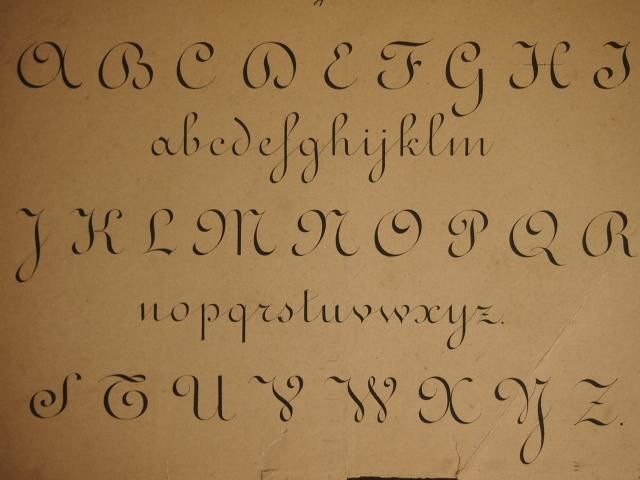 A B C D E F G H I
abcdefghijklm
J K L M N O P Q R
nopqrstuvwxyz.
S T U V W X Y Z.